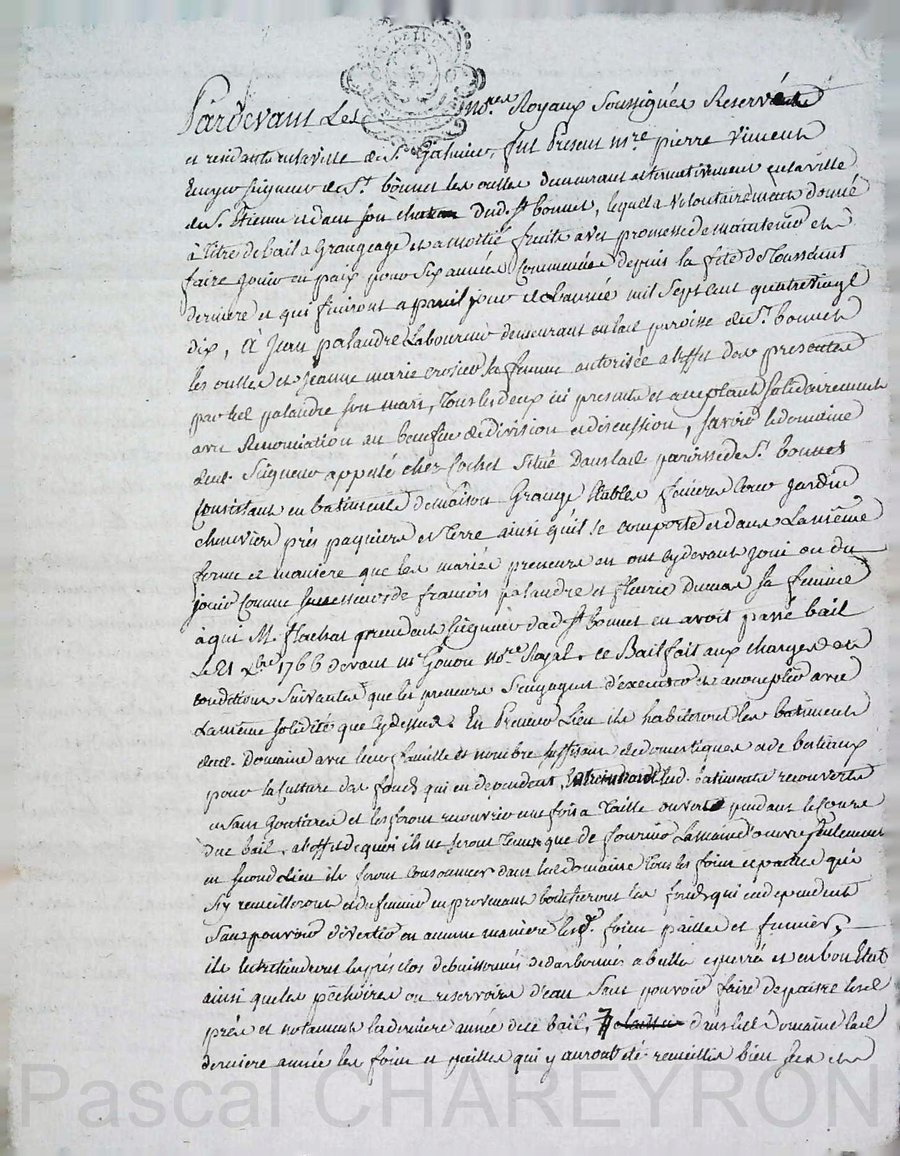 Pardevant Les no.res Royaux Soussignés Reservés
et residants en la ville de St. Galmier, fut Present mre pierre Vincent
Ecuyer seigneur de St. bonnet les oulles demeurant alternativement en la ville
de St. Etienne et dans son chateau dud. St bonnet, lequel a volontairement donné
à Titre de bail a Grangeage et a moitié fruits avec promesse de maintenir et
faire jouir en paix pour six années commencées depuis la fete de Toussaint
derniere et qui finiront a pareil jour de l'année mil sept cent quatre vingt
dix, à Jean palandre Laboureur demeurant en lad. paroisse de St. bonnet
les oulles et jeanne marie crosier sa femme autorisée a l'effet des presentes
par led palandre son mari, tous les deux ici presents et acceptant solidairement
avec Renonciation au benefice de division et discussion, savoir le domaine
dud. Seigneur appelé chez Cochet situé Dans lad. paroisse de St. bonnet
Consistant en batiments de maison Grange Etables feniere Cour jardin
cheneviere près paquiers et terre ainsi qu'il se comporte et dans La même
forme et maniere que les mariés preneurs en ont cydevant joui ou du
jouir comme successeurs de francois palandre et fleurie Dumas sa femme
à qui M. flachat quendant seigneur dud. St bonnet en avoit passé bail
Le 21 xbre 1766 devant me Gonon no.re Royal. ce Bail fait aux charges et
conditions suivantes que les preneurs s'engagent d'executer et accomplir avec
La même solidité que cy dessus. En Premier Lieu ils habiteront les batiments
dud. Domaine avec leur famille et nombre suffisant de domestiques et de bestiaux
pour la culture des fonds qui en dependent, lesd. batiments recouverts
et sans goutieres et les feront recouvrir une fois a Taille ouverte pendant le cours
du bail, a l'effet de quoi ils ne seront tenus que de fournir La main d'œuvre seulement
en second Lieu ils feront consommer dans led. domaine tous les foins et pailles qui
s'y recueilleront et du fumier en provenant bonifieront les fonds qui en dependent
sans pouvoir divertir en aucune maniere lesd. foins pailles et fumiers,
ils entretiendront les prés clos debuissonnés dedarbonnés a bulle esperrés et en bon Etat
ainsi que les pêchoires ou reservoirs d'eau sans pouvoir faire depaitre lesd.
prés et notament la derniere année de ce bail, dans led. Domaine lad.
derniere année les foins et pailles qui y auront été recueillis bien secs et
Pascal CHAREYRON